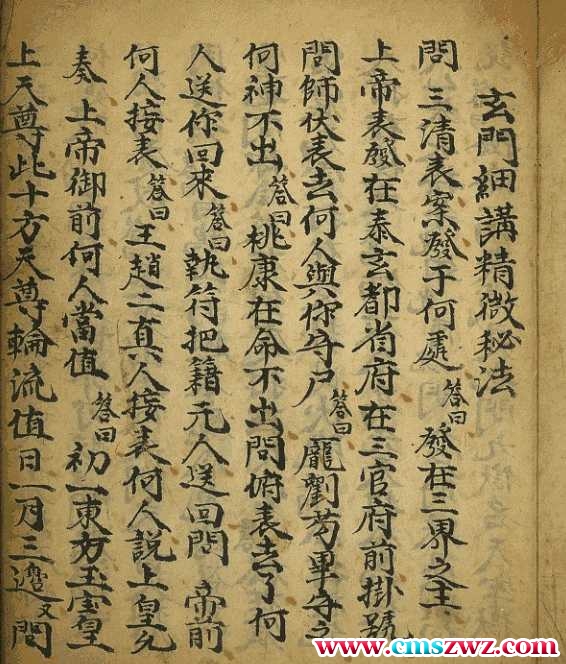 玄門細講精微秘法
問 三清表案發于何處答曰發在三界之主
上帝表發在泰玄都省府在三官府前掛號
問師伏表去何人與你守尸答曰龐劉苟畢守之
何神不出答曰桃康在命不出問俯表去了何
人送你回來答曰執符把籍元人送回問 帝前
何人接表答曰王趙二真人接表何人說上皇允
奏 上帝御前何人當值答曰初一東方玉宝皇
上天尊此十方天尊輪流值日一月三遶又問
www.cmszwz.com